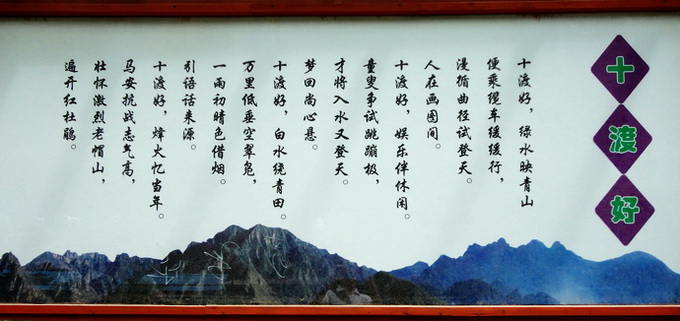 十渡好
十渡好，绿水映青山
便乘缆车缓缓行，
漫循曲径试登天。
人在画图间。
十渡好，娱乐伴休闲。
童叟争试跳蹦极，
才将入水又登天。
梦回尚心悬。
十渡好，白水绕青田。
万里低垂空翠凫，
一雨初晴色借烟。
引语话来源。
十渡好，烽火忆当年。
马安抗战志气高，
壮怀激烈老帽山，
遍开红杜鹃。